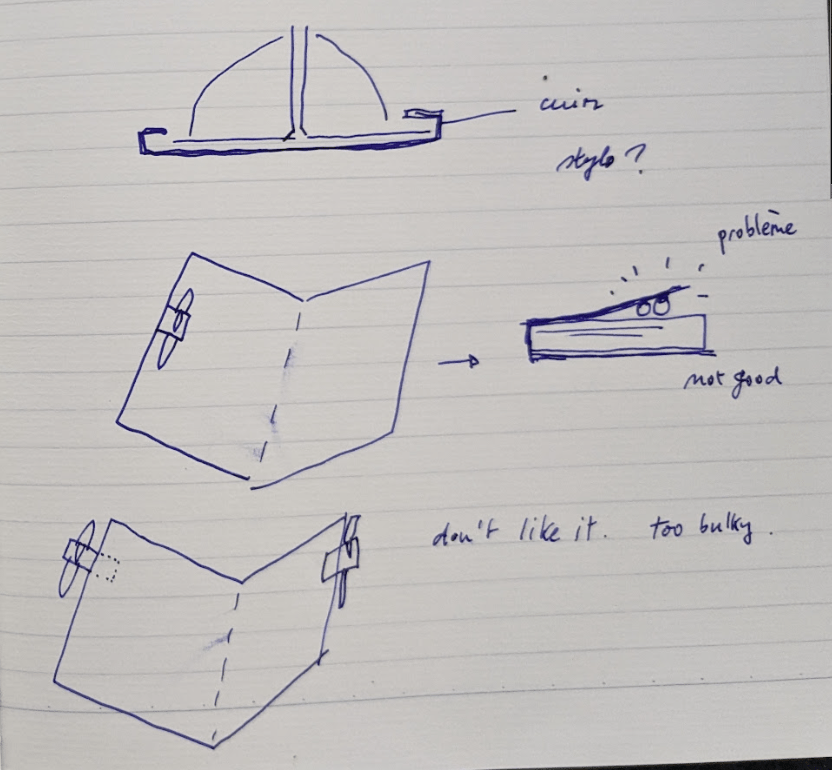 cuir
stylo ?
problème
not good
don't like it. too bulky.